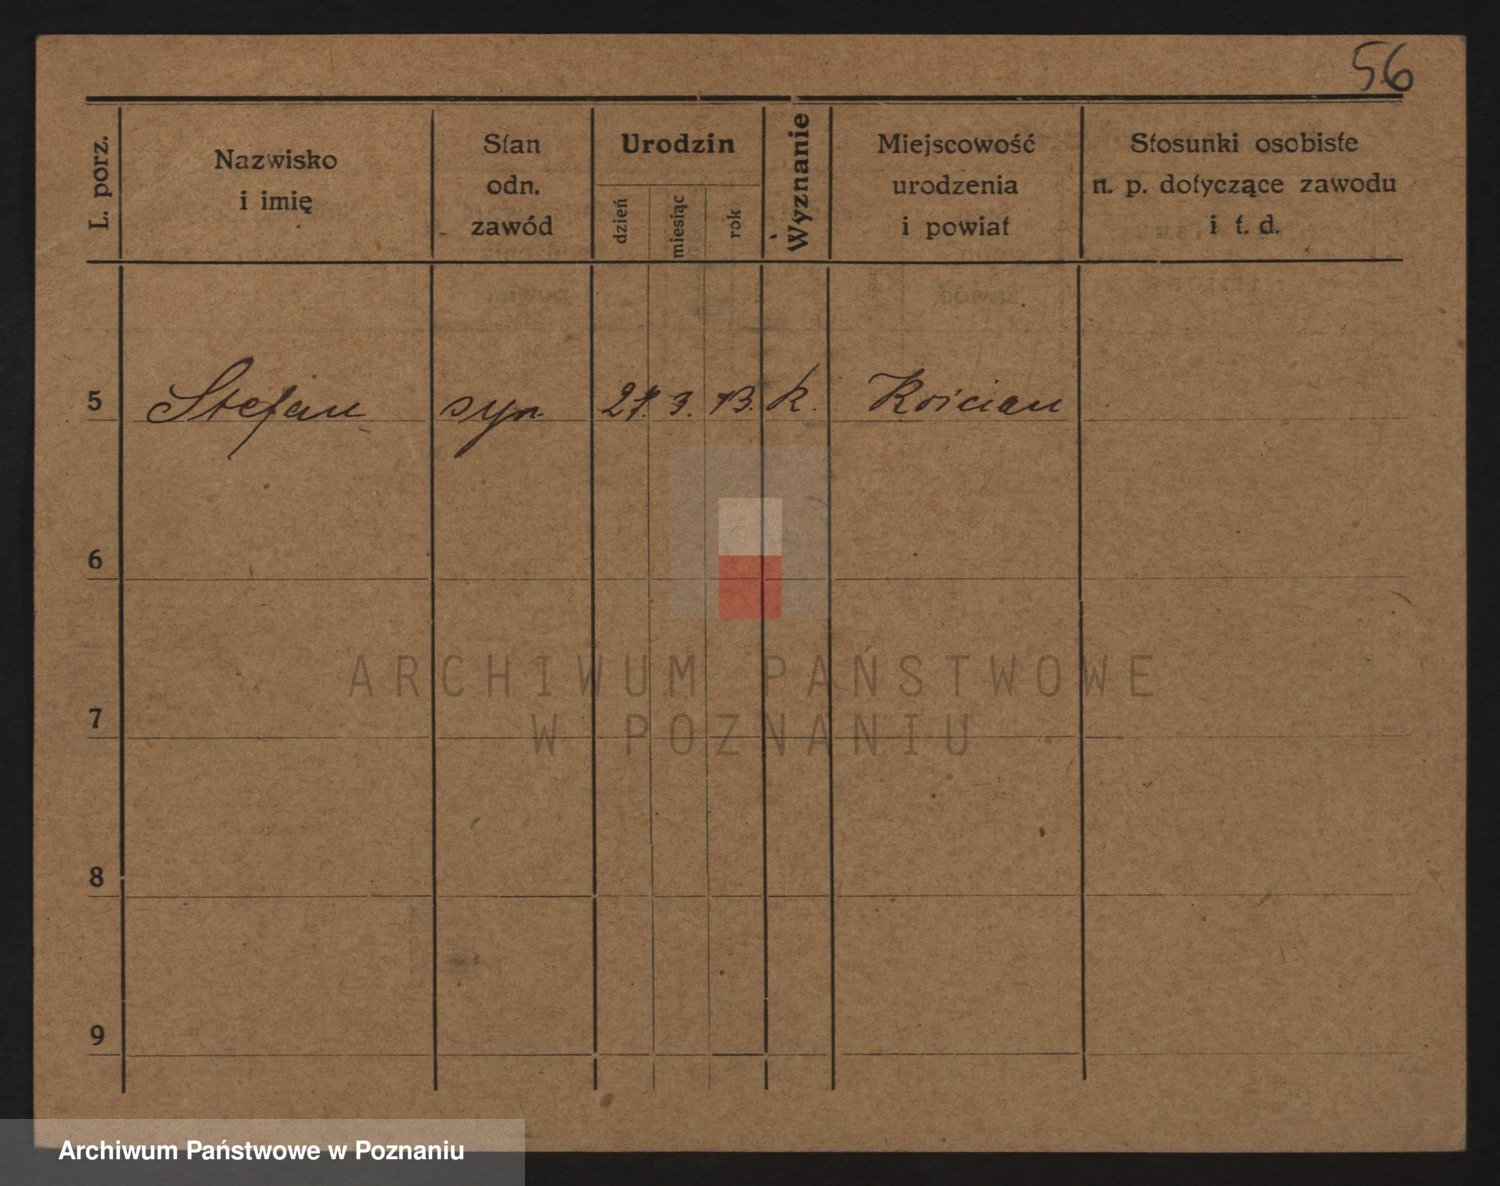 56
L. porz.
Nazwisko
i imię
Stan
odn.
zawód
Urodzin
dzień
miesiąc
rok
Wyznanie
Miejscowość
urodzenia
i powiat
Stosunki osobiste
n. p. dotyczące zawodu
i t. d.
5 Stefan syn 3. 13. k. Kościan
6
7
8
9
ARCHIWUM PAŃSTWOWE
W POZNANIU
Archiwum Państwowe w Poznaniu